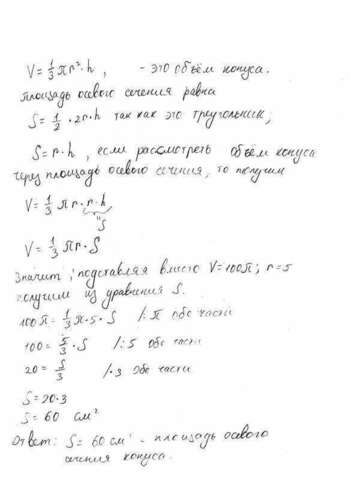 V=1/3 πr²·h, - это объём конуса.
площадь осевого сечения равна
S=1/2·2r·h так как это треугольник;
S=r·h, если рассмотреть объём конуса
через площадь осевого сечения, то получим
V=1/3 πr·r·h,
"S
V=1/3 πr·S
Значит, подставляя вместо V=100π; r=5
получим из уравнения S.
100π=1/3 π·5·S /:π обе части
100=5/3·S /:5 обе части
20=S/3 /·3 обе части
S=20·3
S=60 см²
Ответ: S=60см² - площадь осевого
сечения конуса.